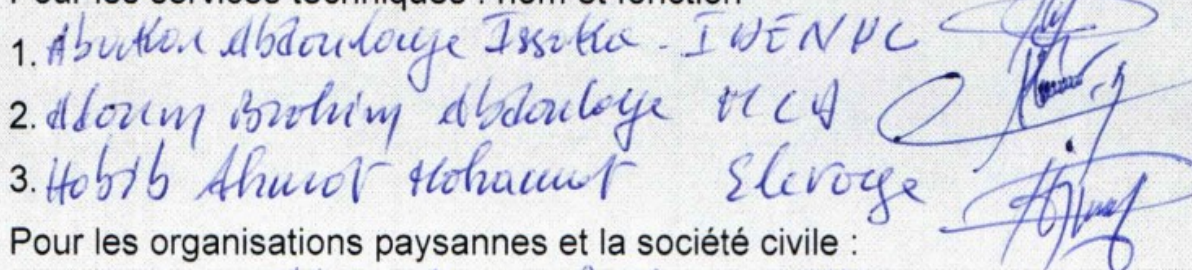 Pour les services techniques : nom et fonction
1. Abakar Abdoulaye Issaka - IDENPC
2. Adoum Brahim Abdoulaye MCA
3. Habib Ahmat Mahamat Elevage
Pour les organisations paysannes et la société civile :